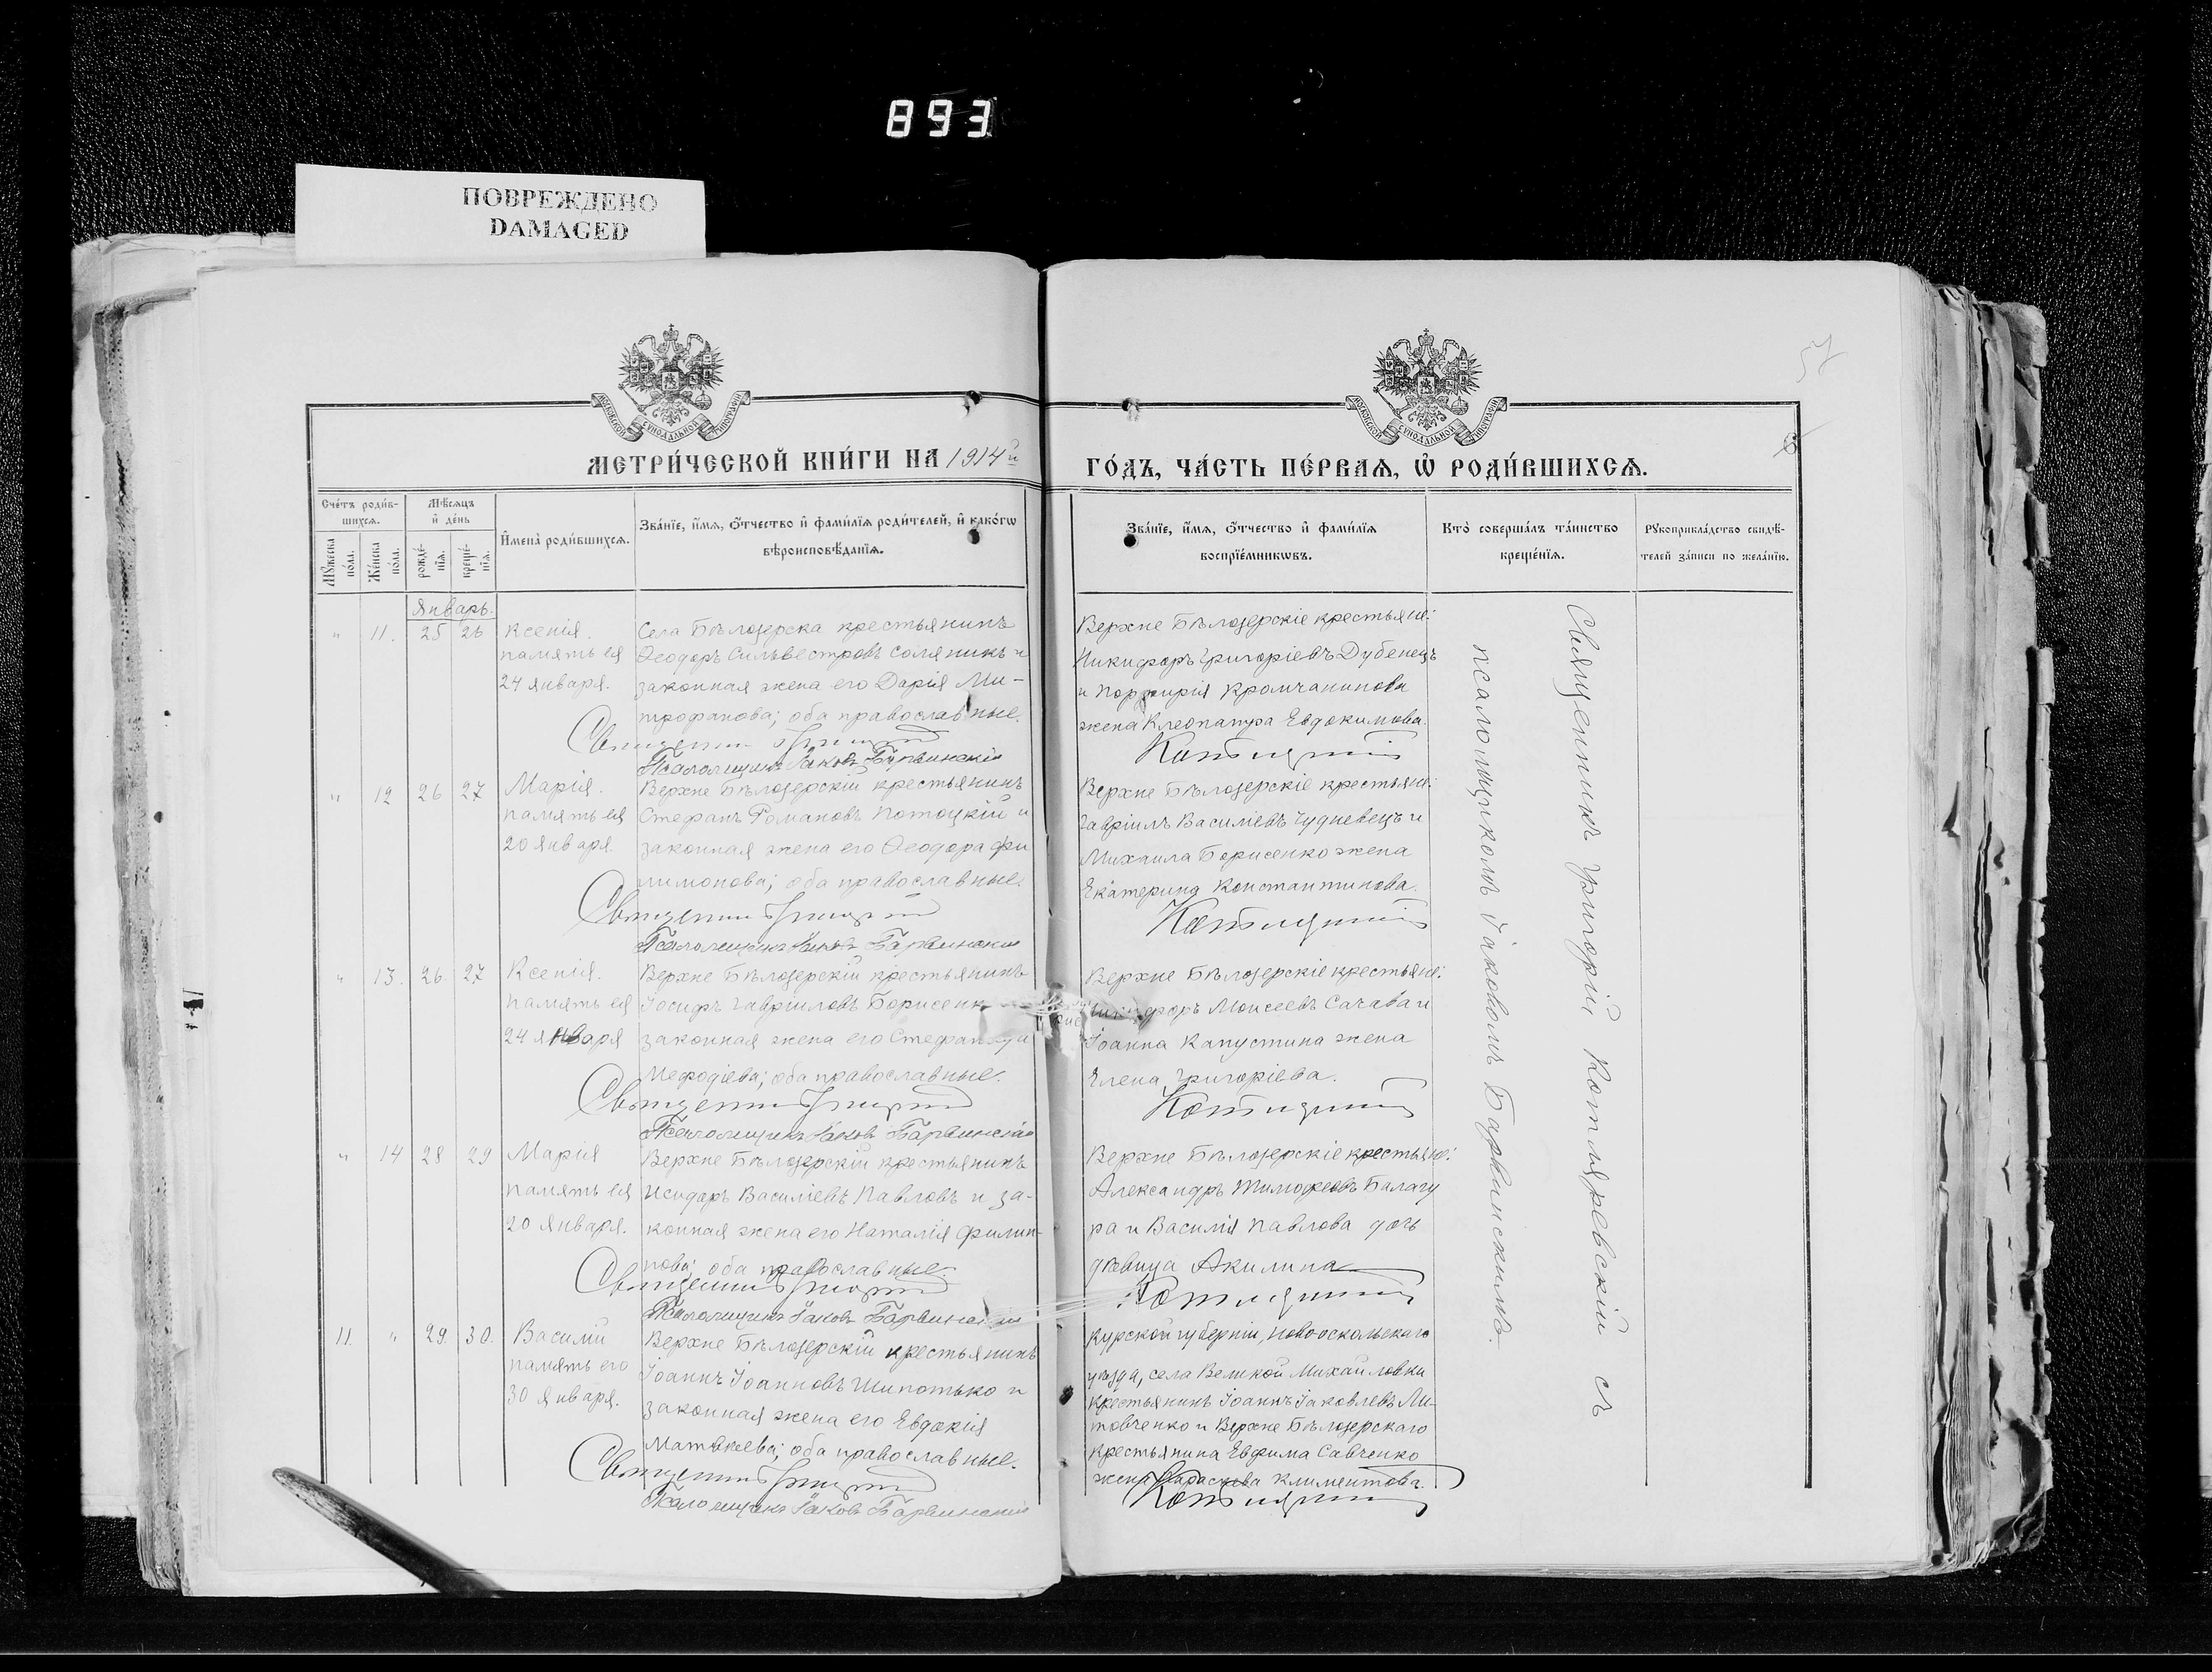 893
ПОВРЕЖДЕНО
DAMAGED
57
МОСКОВСКОЙ СѴНОДАЛЬНОЙ ТИПОГРАФІИ
МОСКОВСКОЙ СѴНОДАЛЬНОЙ ТИПОГРАФІИ
МЕТРИ́ЧЕСКОЙ КНИ́ГИ НА 1914й
ГО́ДЪ, ЧА́СТЬ ПЕ́РВАѦ, Ѡ҆ РОДИ́ВШИХСѦ.
Сче́тъ роди́в-
шихсѧ.
Мѣ́сѧцъ
и҆ де́нь
Мꙋ́жеска
по́ла.
Же́нска
по́ла.
рожде́-
нїѧ.
креще́-
нїѧ.
И҆мена̀ роди́вшихсѧ.
Зва́нїе, и҆́мѧ, ѻ҆́тчество и҆ фами́лїѧ роди́телей, и҆ како́гѡ
вѣроисповѣ́данїѧ.
Зва́нїе, и҆́мѧ, ѻ҆́тчество и҆ фами́лїѧ
воспрїе́мникѡвъ.
Кто̀ соверша́лъ та́инство
креще́нїѧ.
Рꙋкоприкла́дство свидѣ́-
телей за́писи по жела́нїю.
Январь.
" 11. 25 26
Ксенія.
память ея
24 января.
Села Бѣлозерска крестьянинъ
Ѳеодоръ Сильвестровъ Соляникъ и
законная жена его Дарія Ми-
трофанова; оба православные.
Священникъ Григорій
Псаломщикъ Іаковъ Барвинскій
Верхне Бѣлозерскіе крестьяне:
Никифоръ Григоріевъ Дубенецъ
и Порфирія Кромчанинова
жена Клеопатра Евдокимова.
Котляревскій
" 12 26 27
Марія.
память ея
20 января
Верхне Бѣлозерскій крестьянинъ
Стефанъ Романовъ Потоцкій и
законная жена его Ѳеодора Фи
лимонова; оба православные.
Священникъ Григорій
Псаломщикъ Іаковъ Барвинскій
Верхне Бѣлозерскіе крестьяне:
Гавріилъ Василіевъ Чудневецъ и
Михаила Борисенко жена
Екатерина Константинова.
Котляревскій
" 13. 26. 27
Ксенія.
память ея
24 января
Верхне Бѣлозерскій крестьянинъ
Іосифъ Гавріиловъ Борисенк
законная жена его Стефанида
Меѳодіева; оба православные.
Священникъ Григорій
Псаломщикъ Іаковъ Барвинскій
Верхне Бѣлозерскіе крестьяне:
Никифоръ Моисеевъ Сачава и
Іоанна Капустина жена
Елена Григоріева.
Котляревскій
" 14 28 29
Марія
память ея
20 января.
Верхне Бѣлозерскій крестьянинъ
Исидоръ Василіевъ Павловъ и за-
конная жена его Наталія Филип-
пова; оба православные.
Священникъ Григорій
Псаломщикъ Іаковъ Барвинскій
Верхне Бѣлозерскіе крестьяне:
Александръ Тимоѳеевъ Балагу
ра и Василія Павлова дочь
дѣвица Акилина
Котляревскій
11. " 29. 30.
Василій
память его
30 января.
Верхне Бѣлозерскій крестьянинъ
Іоаннъ Іоанновъ Шипотько и
законная жена его Евдокія
Матвѣева; оба православные.
Священникъ Григорій
Псаломщикъ Іаковъ Барвинскій
Курской губерніи, Новооскольскаго
уѣзда, села Великой Михайловки
крестьянинъ Іоаннъ Іаковлевъ Ли-
товченко и Верхне Бѣлозерскаго
крестьянина Евфима Савченко
жена Параскева Климентова.
Котляревскій
Священникъ Григорій Котляревскій съ
псаломщикомъ Іаковомъ Барвинскимъ.